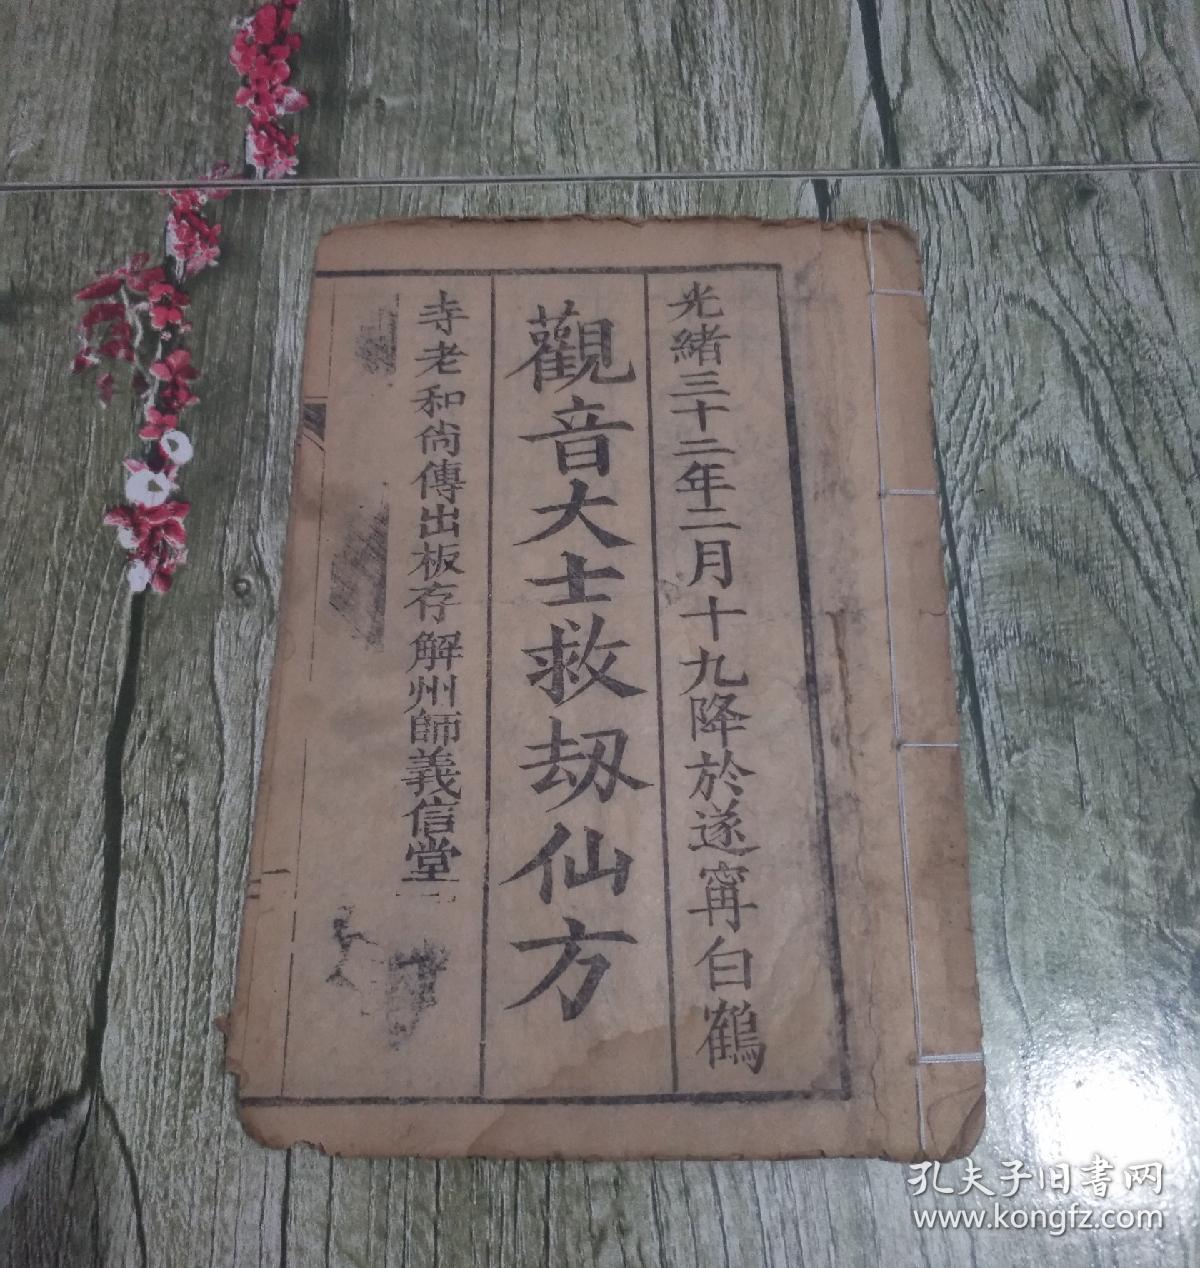 光緒三十二年二月十九降於遂寗白鶴
觀音大士救刼仙方
寺老和尙傳出板存解州師義信堂
孔夫子旧书网
www.kongfz.com